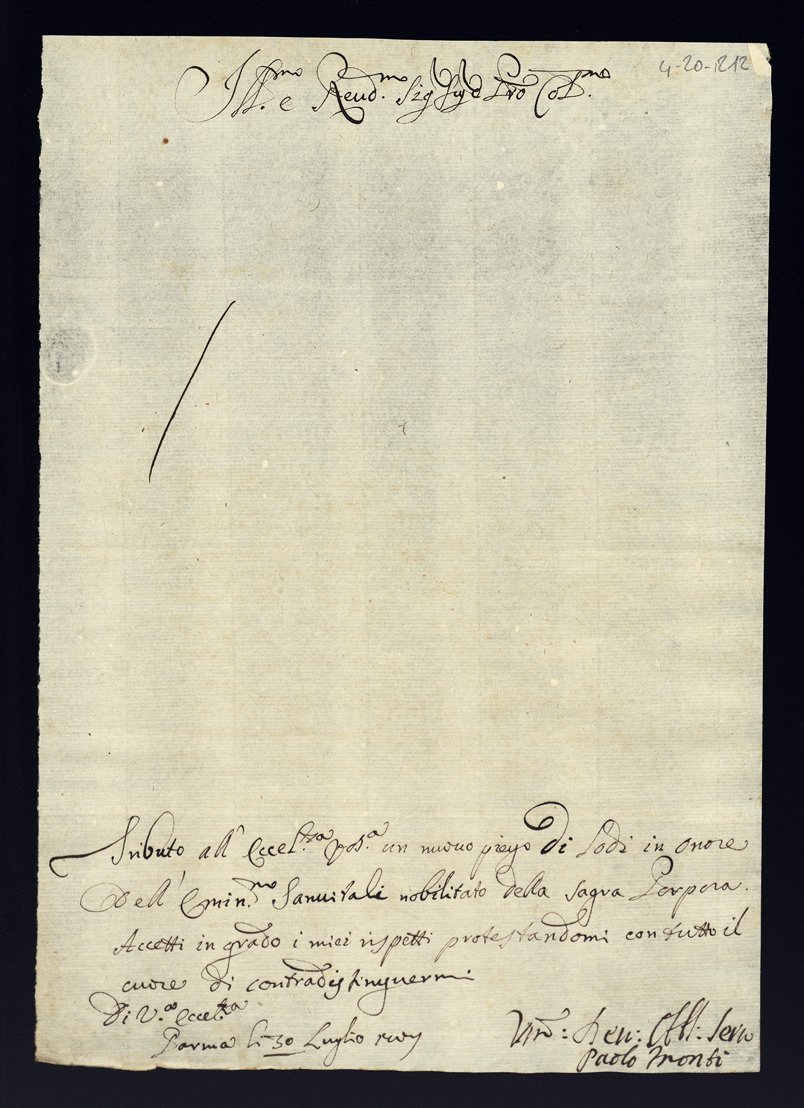 4-20-1212
Ill.mo e Reud.mo Sig Sig e Pro Col.mo
Tributo all' Eccel.za Vos.a un nuouo piego di Lodi in onore
Dell' Emin.mo Sanuitali nobilitato della sagra Porpora.
Accetti in grado i miei rispetti protestandomi con tutto il
cuore di contradistinguermi
Di V.a Eccel.za
Parma li 30 Luglio
Um: Deu: Obl: Seru
Paolo Monti